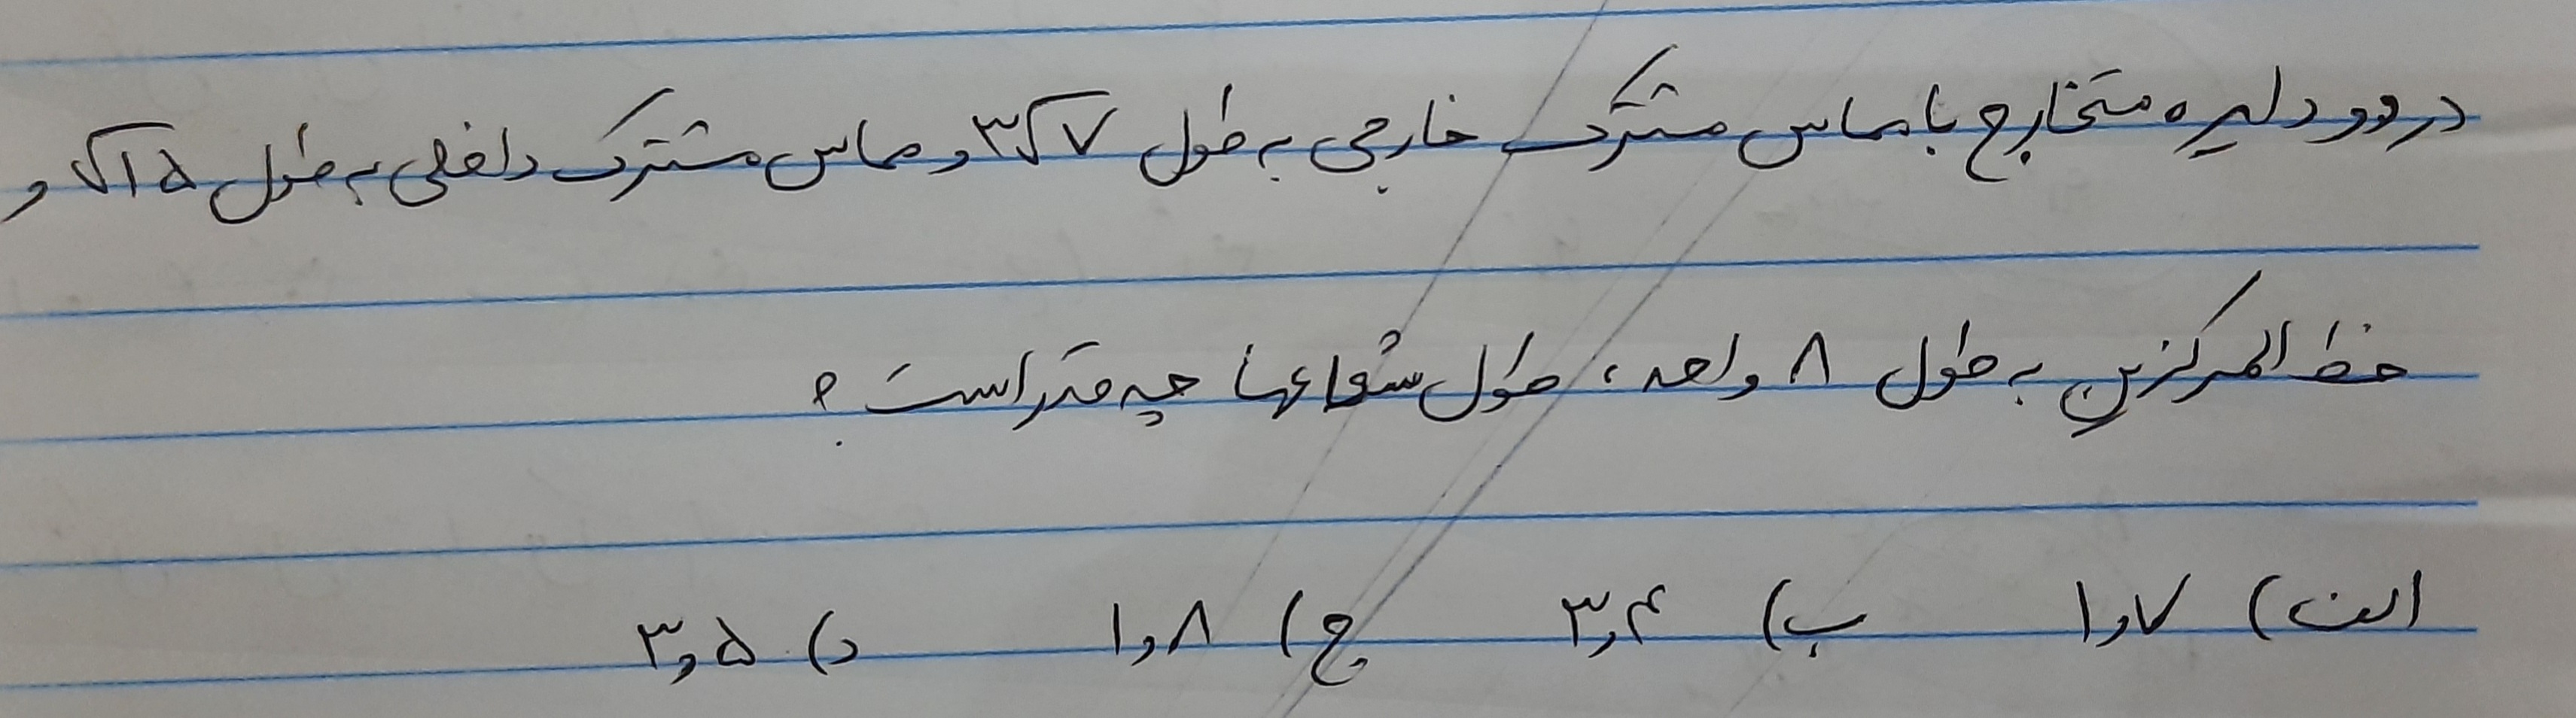 در دو دایره متخارج با مماس مشترک خارجی به طول ۳√۷ و مماس مشترک داخلی به طول √۱۵ و
خط المرکزین به طول ۸ واحد، طول شعاعها چه قدر است؟
الف) ۱,۷ ب) ۳,۴ ج) ۱,۸ د) ۳,۵